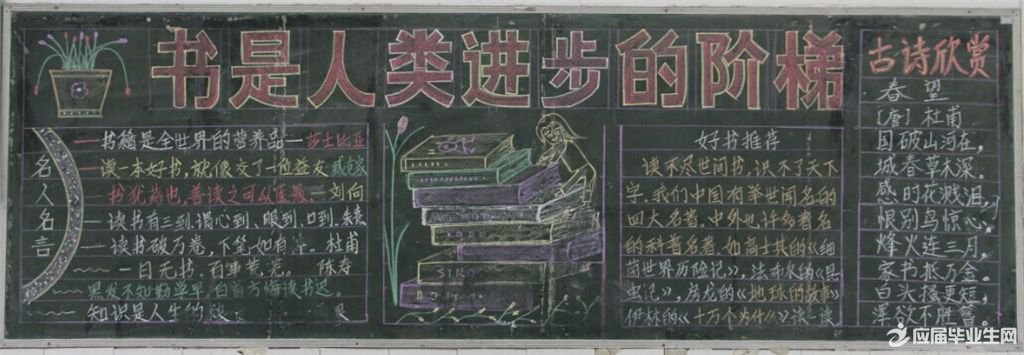 书是人类进步的阶梯
名人名言
书籍是全世界的营养品—莎士比亚
读一本好书,就像交了一位益友 臧克家
书犹药也,善读之可以医愚.—刘向
读书有三到.谓心到、眼到、口到.朱熹
读书破万卷,下笔如有 . 杜甫
一日无书.百事荒芜. 陈寿
黑发不知勤学早 白首方悔读书迟.
知识是人生的
好书推荐
读不尽世间书,识不了天下
字.我们中国有举世闻名的
四大名著.中外也许多著名
的科普名著.如高士其的《细
菌世界历险记》,法布尔的《昆
虫记》,房龙的《地球的故事》
伊林的《十万个为什么》读一读
古诗欣赏
春望
〔唐〕杜甫
国破山河在,
城春草木深.
感时花溅泪,
恨别鸟惊心.
烽火连三月,
家书抵万金.
白头搔更短,
浑欲不胜簪.
应届毕业生网